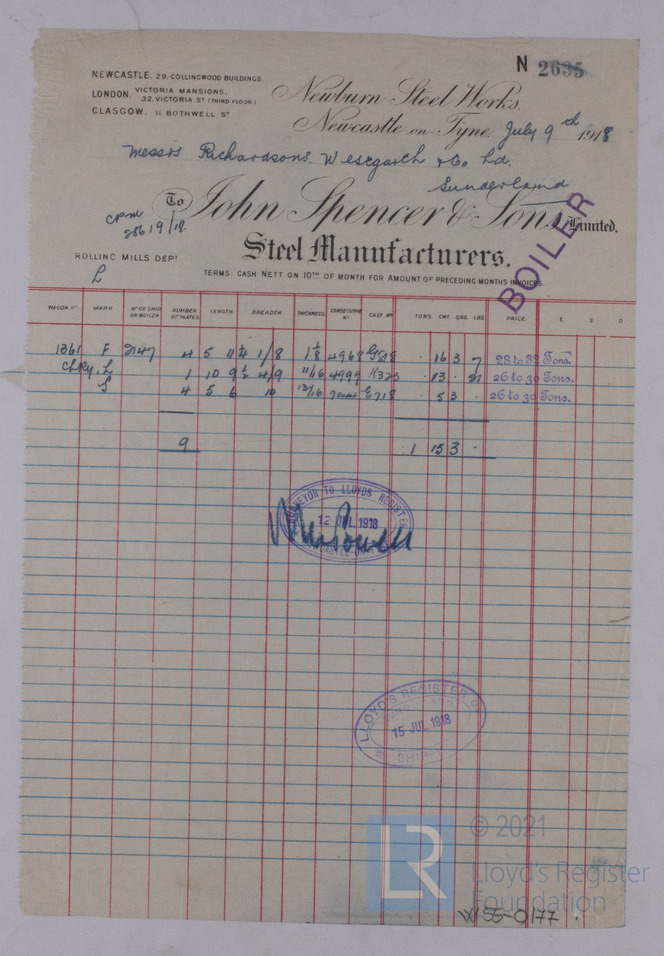 N 2635
NEWCASTLE. 29, COLLINGWOOD BUILDINGS.
LONDON. VICTORIA MANSIONS,
32, VICTORIA ST (THIRD FLOOR)
GLASGOW. 11, BOTHWELL ST
Newburn Steel Works.
Newcastle-on-Tyne, July 9th 1918
Messrs Richardsons. Westgarth & Co Ld.
Sunderland
To John Spencer & Sons, Limited,
Steel Manufacturers.
BOILER
ROLLING MILLS DEPT
L
TERMS: CASH NETT ON 10TH OF MONTH FOR AMOUNT OF PRECEDING MONTHS INVOICES.
WAGON NO MARK NO OF SHIP OR BOILER NUMBER OF PLATES LENGTH. BREADTH THICKNESS. CONSECUTIVE NO CAST NO TONS. CWT. QRS. LBS. PRICE. £. S. D
1361 F 2147 4 5 11 1/8 1 1/8 4968 16 3 7 28 to 32 Tons.
1 10 9 1/2 4/9 11/16 4999 13 21 26 to 30 Tons.
4 5 6 10 13/16 5 3 26 to 30 Tons.
9 1 15 3
SURVEYOR TO LLOYDS REGISTER
12 JUL 1918
LLOYD'S REGISTER OF
15 JUL 1918
SHIPPING
LR
© 2021
Lloyd's Register
Foundation
W155-0177